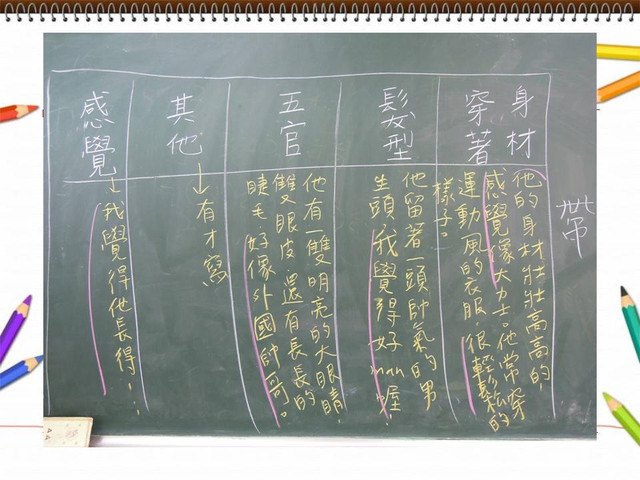 帶
身材
穿著
他的身材壯壯高高的,
感覺像大力士。他常穿
運動風的衣服,很輕鬆的
樣子。
髮型
他留著一頭帥氣的男
生頭,我覺得好man喔!
五官
他有一雙明亮的大眼睛,
雙眼皮,還有長長的
睫毛,好像外國帥哥。
其他
→有才寫
感覺
→我覺得他長得…